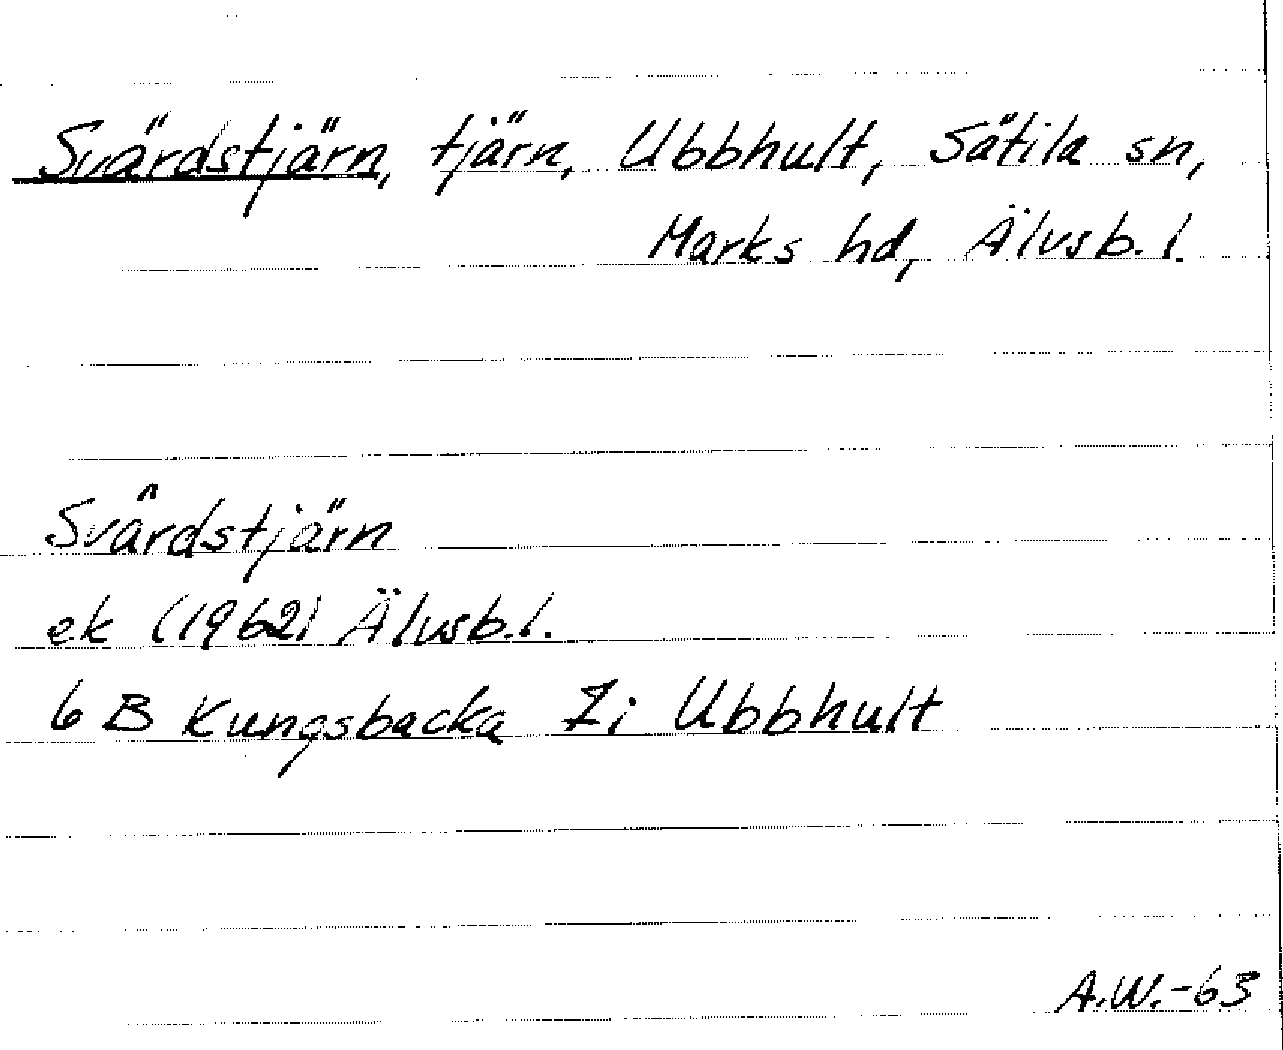 Svärdstjärn, tjärn, Ubbhult, Sätila sn,
Marks hd, Älvsb. l.
Svärdstjärn
ek (1962) Älvsb. l.
6 B Kungsbacka Ii Ubbhult
A.W.-63